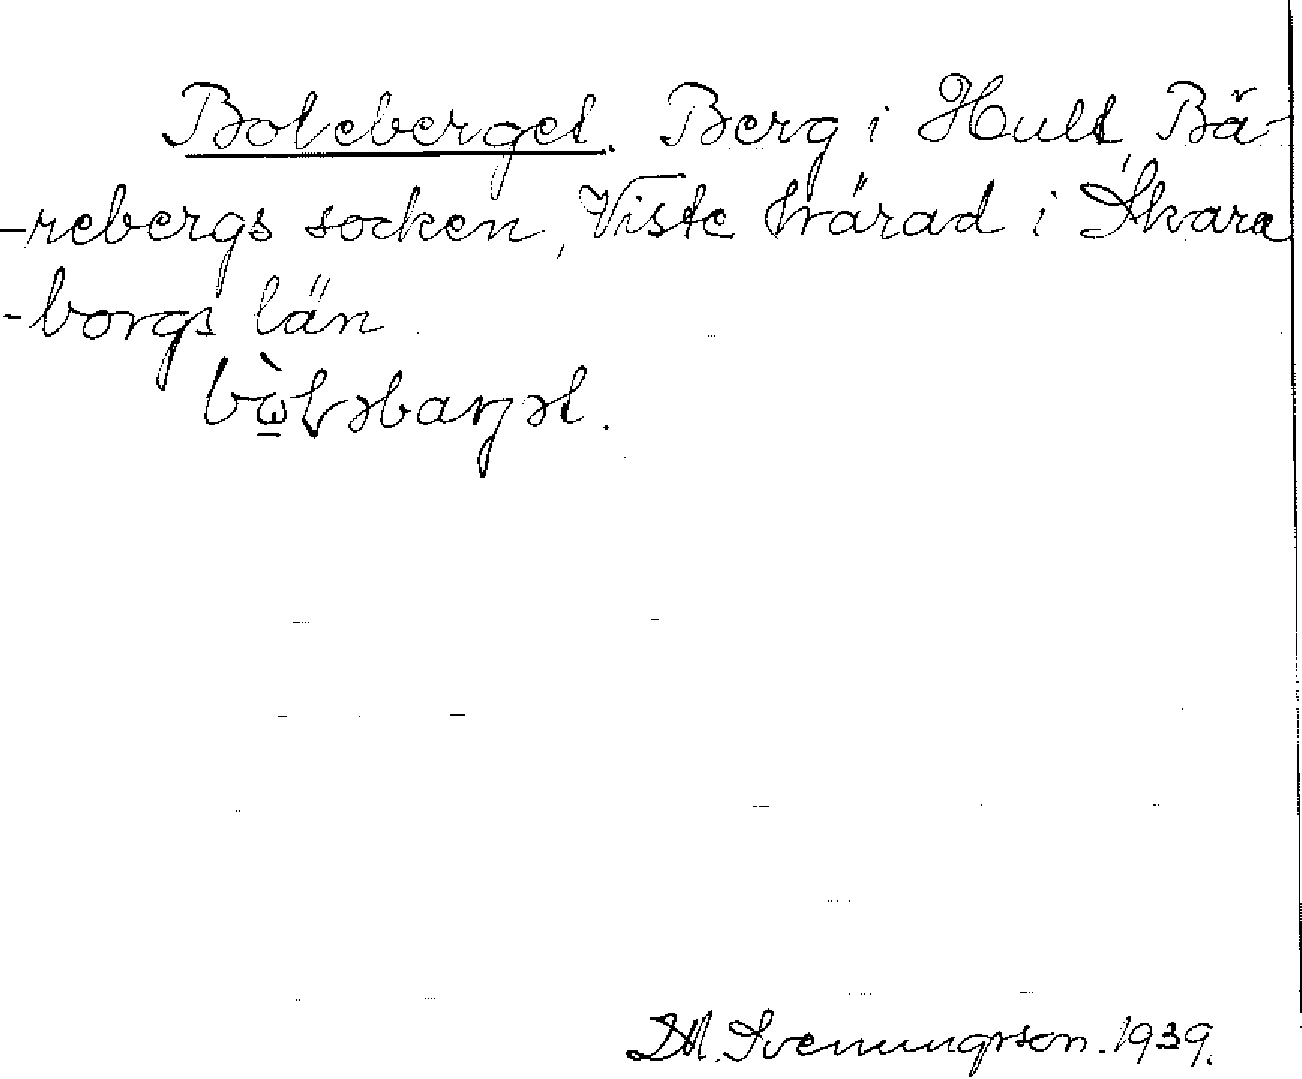 Boteberget. Berg i Hult, Bä-
-rebergs socken, Viste härad i Skara
-borgs län.
Svenungsson. 1939.